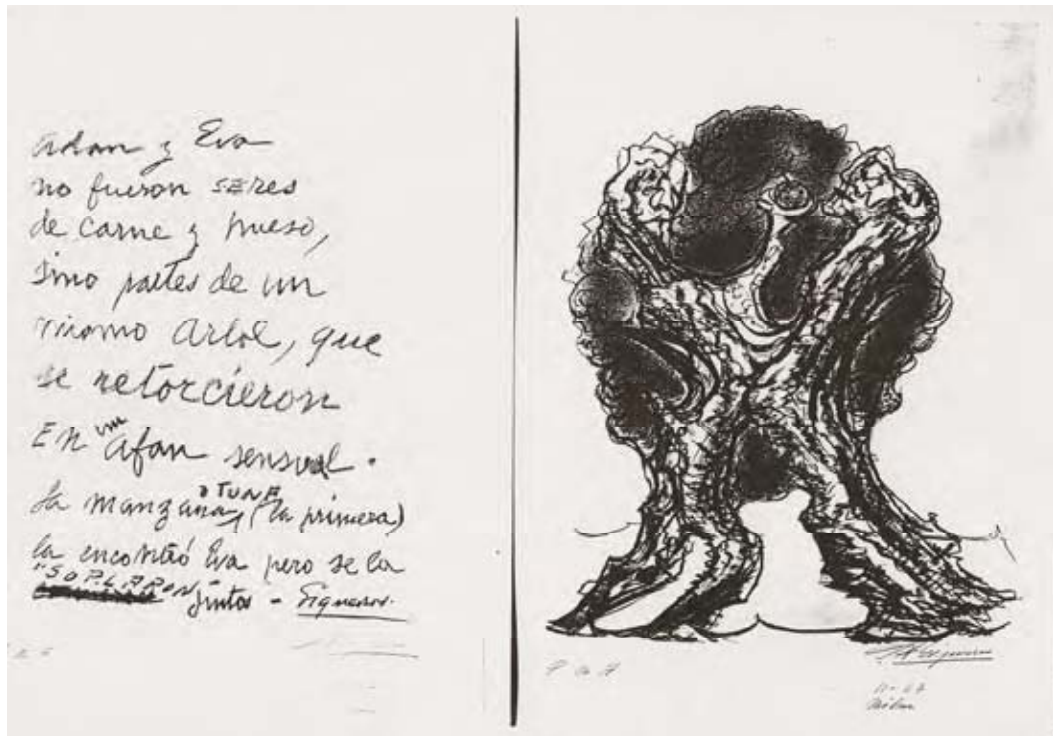 Adan y Eva
no fueron SERes
de carne y hueso,
sino partes de un
mismo arbol, que
se retorcieron
En un afan sensual.
la manzana o TUNA (la primera)
la encontró Eva pero se la
"SOPLARON juntos - Siqueiros.
Siqueiros
P a A